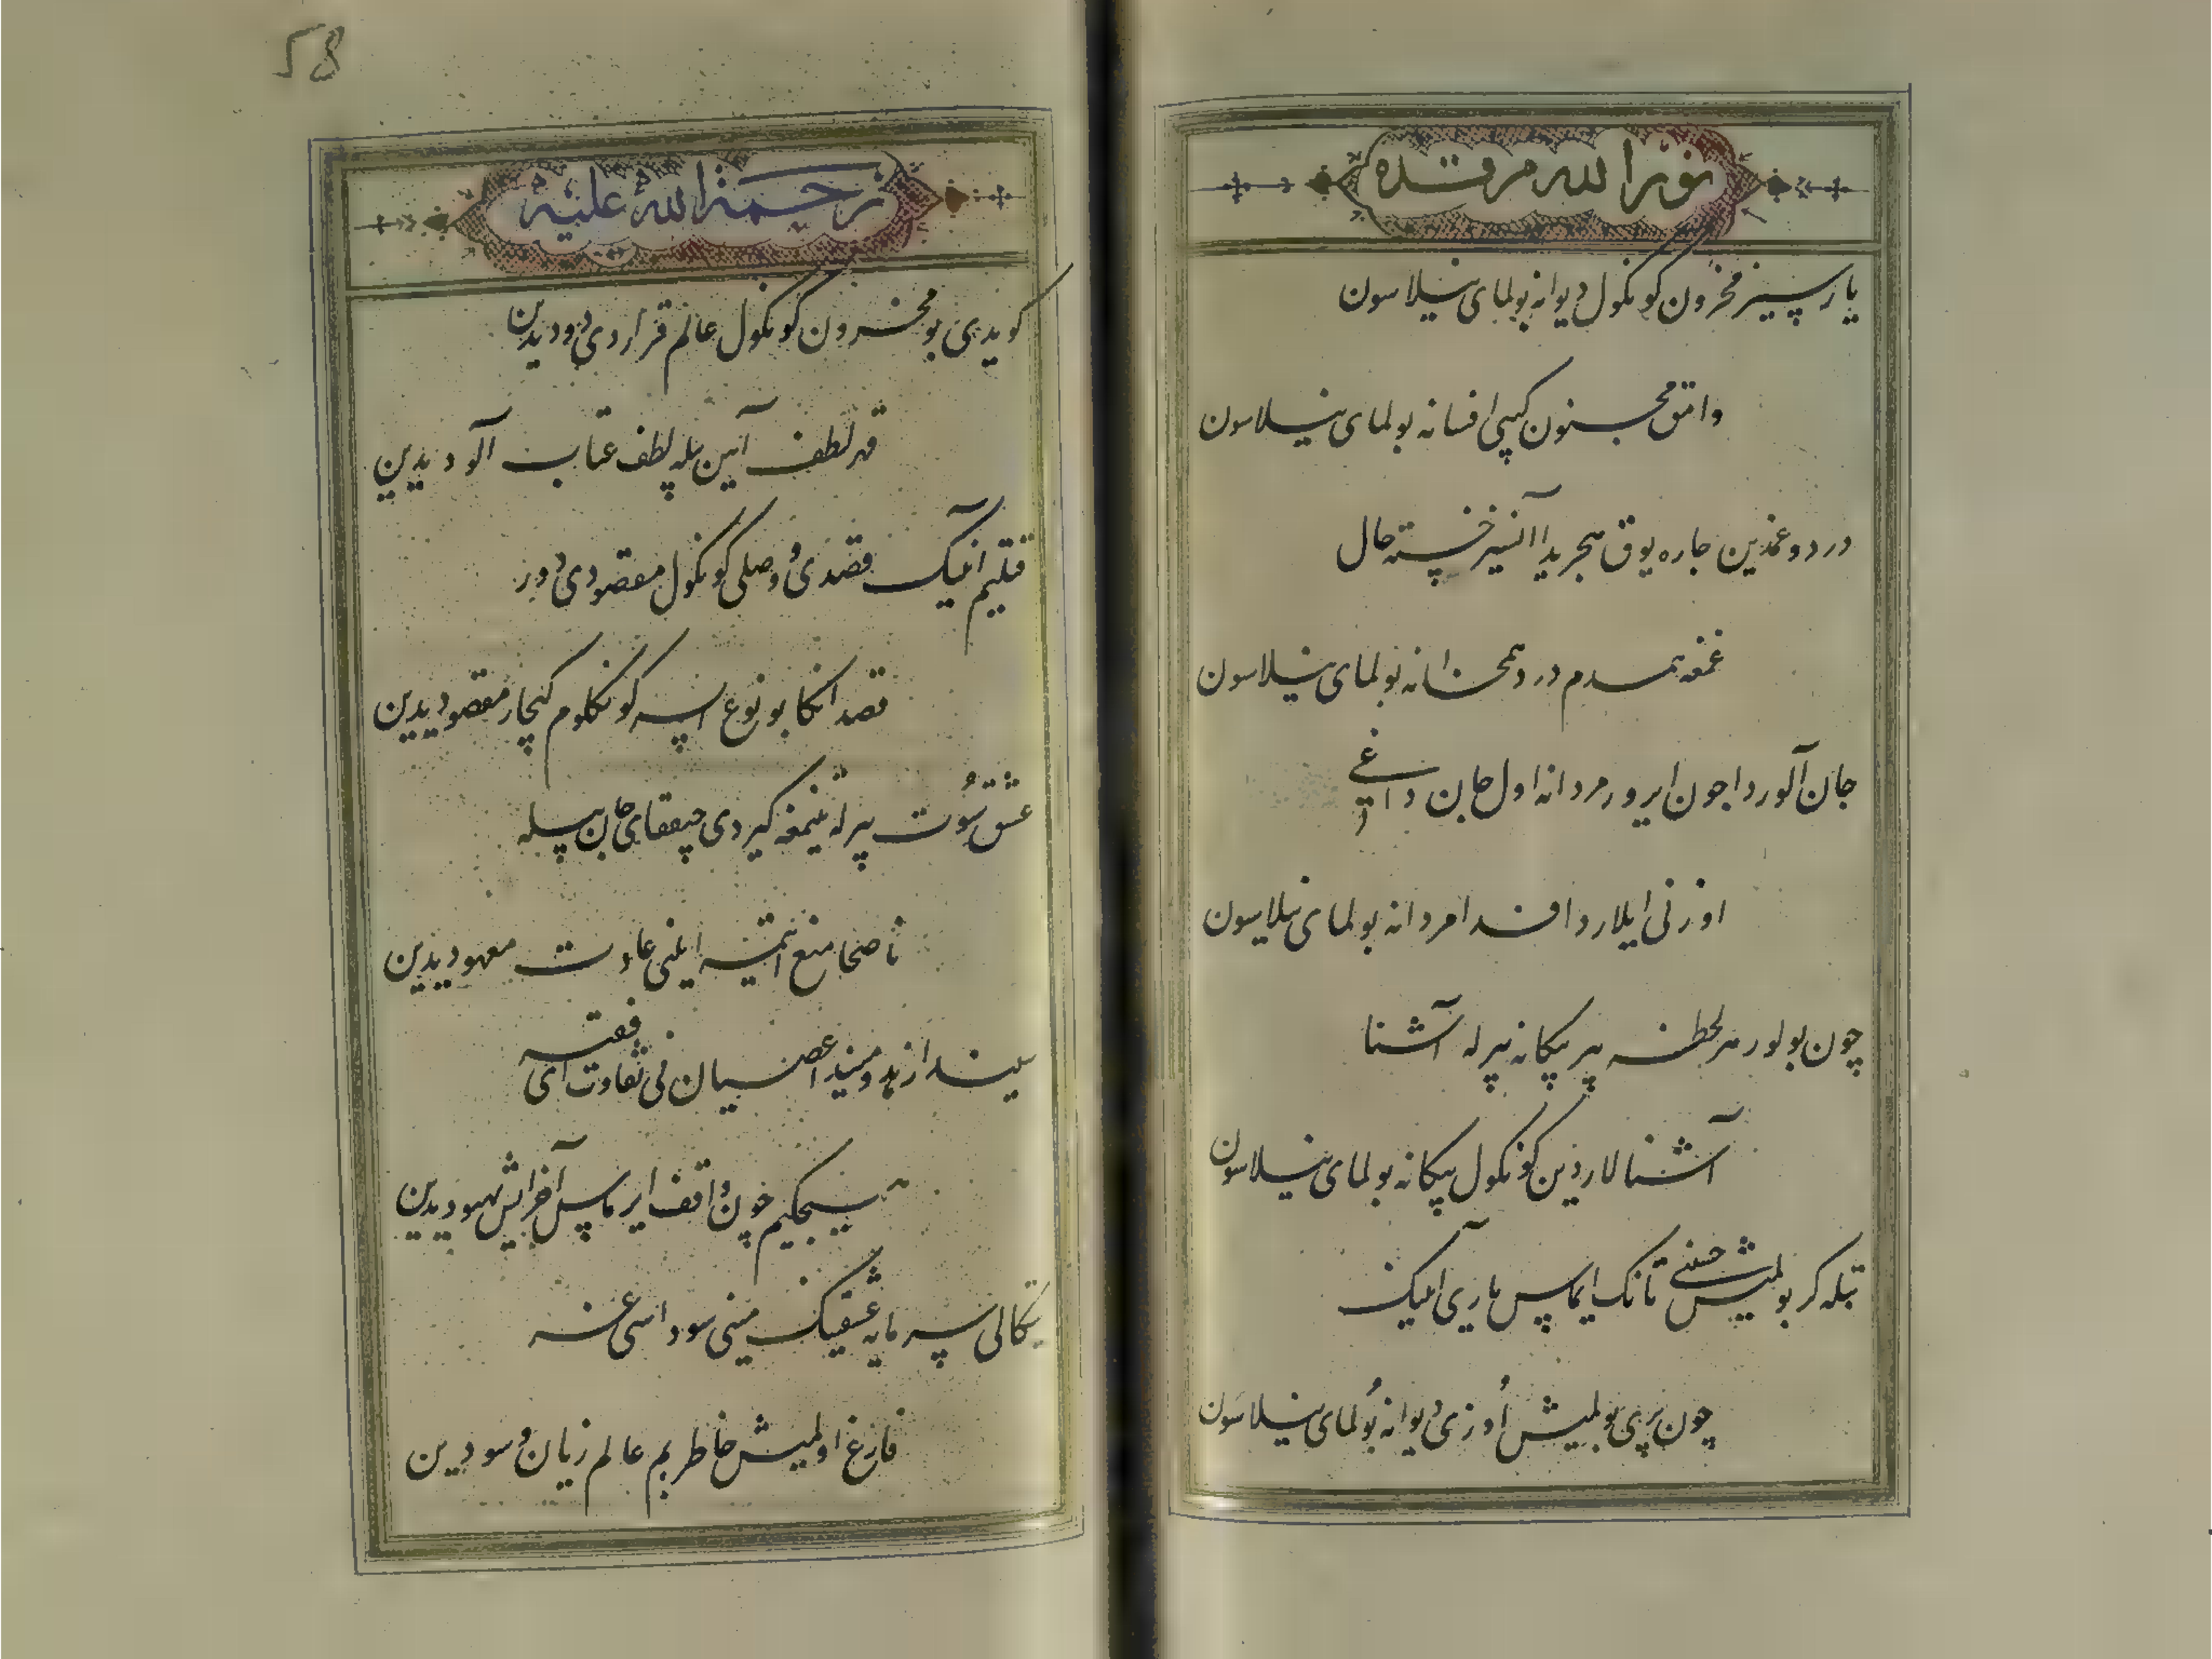 نور الله مرقده
یارسیز محزون کونکول دیوانه بولمای نیلاسون
وامق مجنون کپی افسانه بولمای نیلاسون
درد و غمدین جاره یوق هجریدا آنسیز خسته حال
غمغه همدم درد همخانه بولمای نیلاسون
جان آلوردا جون ایرور مردانه اول جان
اوزنی ایلاردا فدا مردانه بولمای نیلاسون
چون بولور هر لحظه بیر بیکانه بیرله آشنا
آشنالاردین کونکول بیکانه بولمای نیلاسون
بولمیش تانک ایماس یاری انیک
چون پری بولمیش اوزی دیوانه بولمای نیلاسون
58
رحمة الله علیه
کویدی بو محزون کونکول عالم
قهر لطف آیین بیله لطف عتاب آلودیدین
قتلیم انیک قصدی و وصلی کونکول مقصودی دور
قصد انکا بو نوع ایسه کونکلوم کیچار مقصودیدین
عشق سوت بیرله تنیمغه کیردی چیققای جان بیله
ناصحا منع ایتمه ایلنی عادت معهودیدین
عصیان نی تفاوت
خون واقف ایرماس آفرینش بهبودیدین
سرمایه عشقینک مینی سوداسی غه
فارغ اولمیش خاطریم عالم زیان و سودیدین